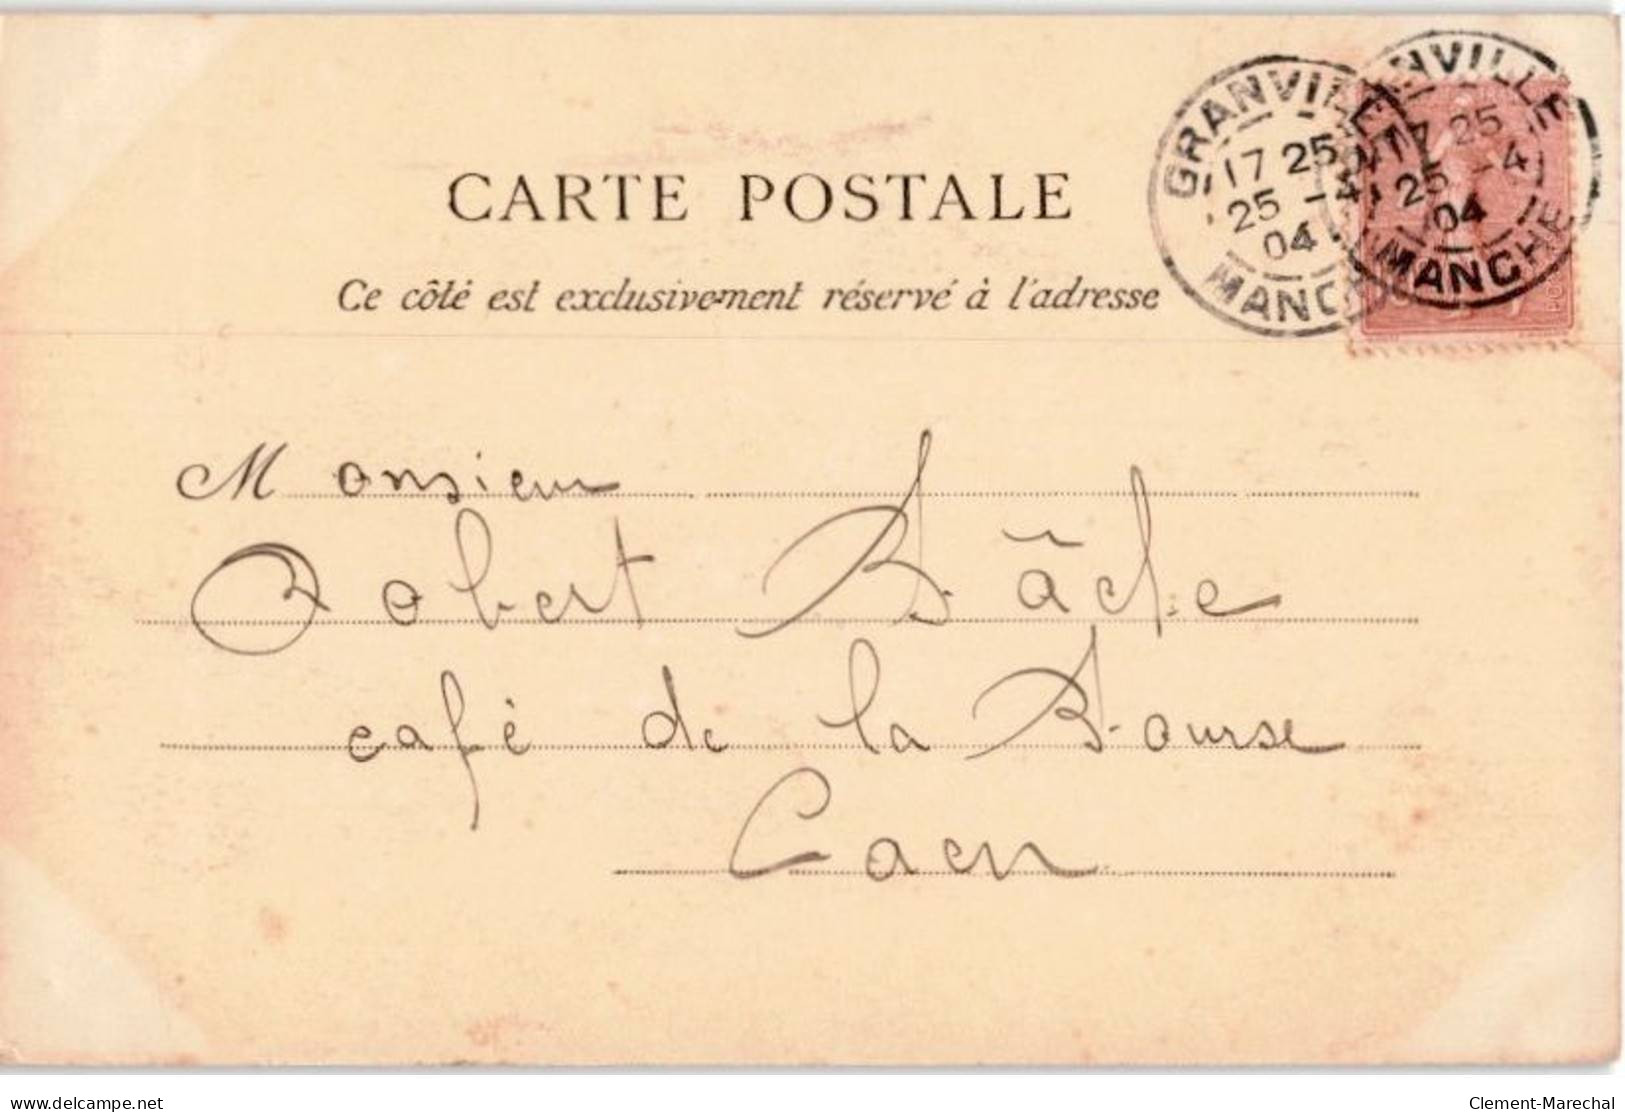 CARTE POSTALE
Ce côté est exclusivement réservé à l'adresse
GRANVILLE
17 25
25 -4
04
MANCHE
GRANVILLE
17 25
25 -4
04
MANCHE
Monsieur
Robert Bâcle
café de la Bourse
Caen
delcampe.net
Clement-Marechal